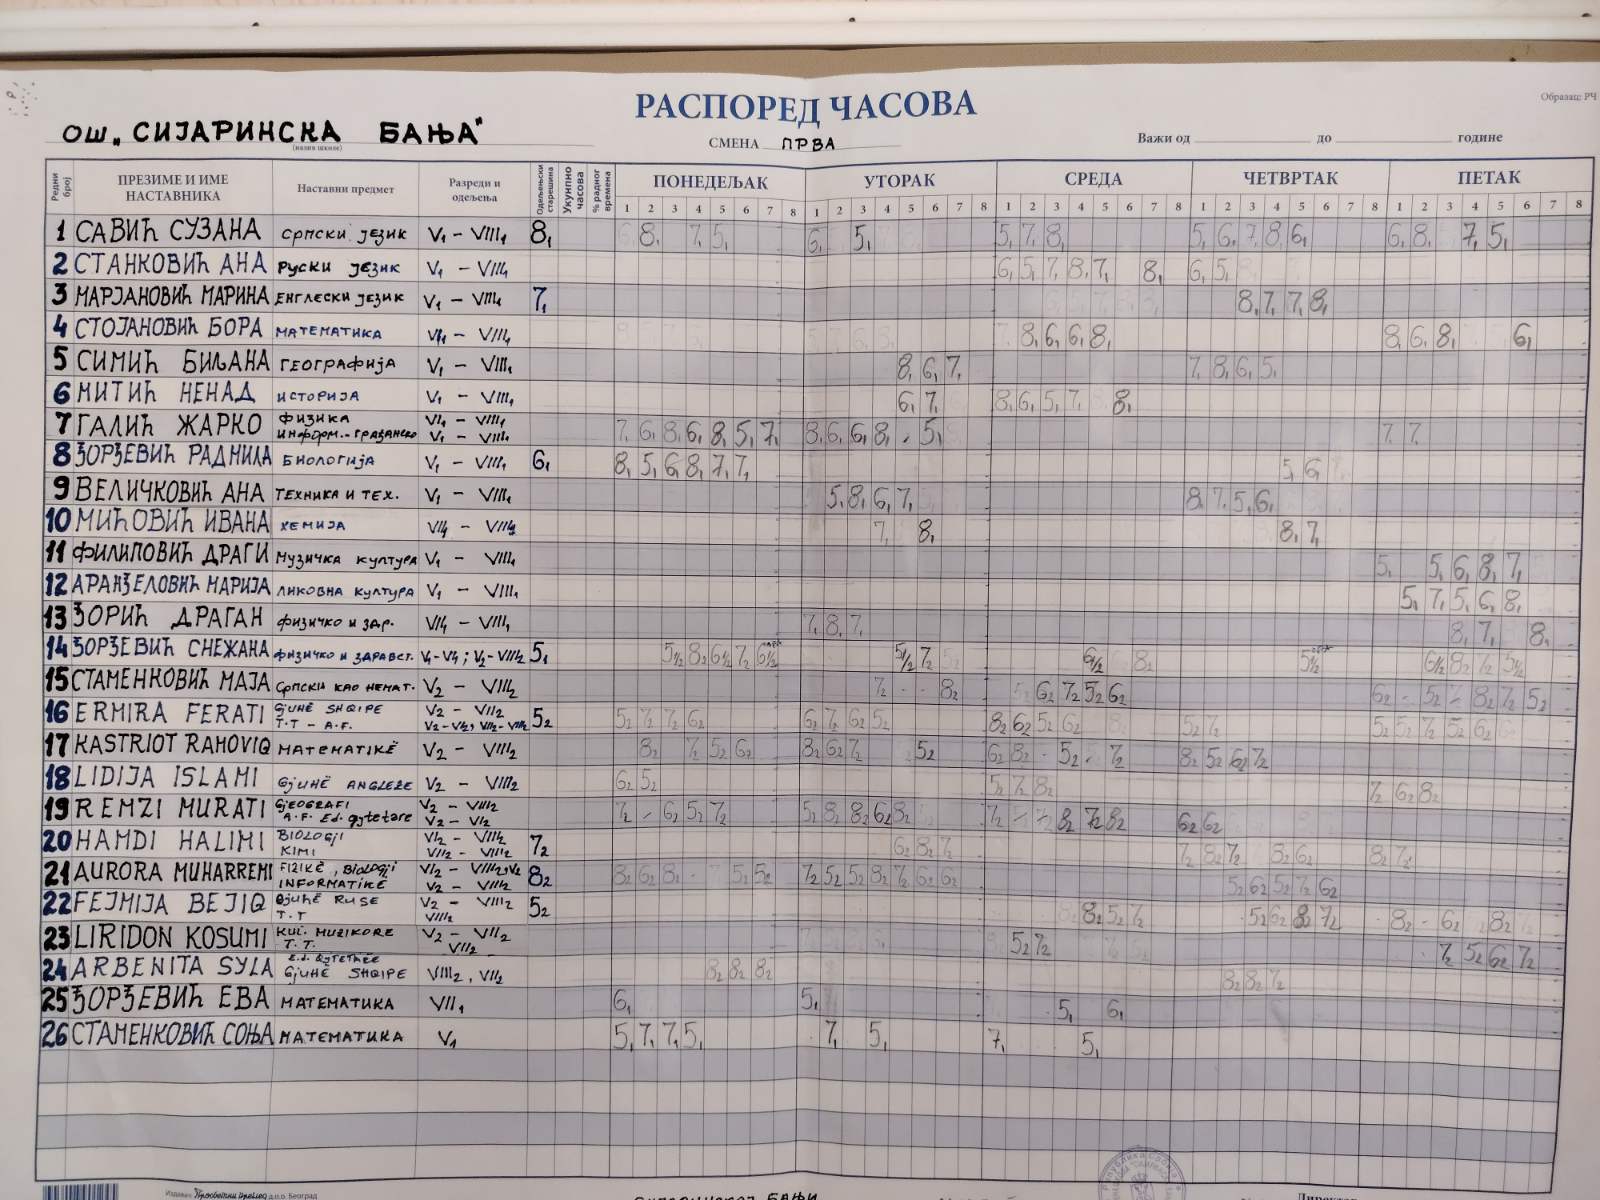 РАСПОРЕД ЧАСОВА
Образац: РЧ
ОШ „СИЈАРИНСКА БАЊА"
(назив школе)
СМЕНА ПРВА
Важи од до године
Редни број ПРЕЗИМЕ И ИМЕ НАСТАВНИКА Наставни предмет Разреди и одељења Одељењски старешина Укупно часова % радног времена ПОНЕДЕЉАК УТОРАК СРЕДА ЧЕТВРТАК ПЕТАК
1 2 3 4 5 6 7 8 1 2 3 4 5 6 7 8 1 2 3 4 5 6 7 8 1 2 3 4 5 6 7 8 1 2 3 4 5 6 7 8
1 САВИЋ СУЗАНА СРПСКИ ЈЕЗИК V₁ – VIII₁ 8₁ 8₁ 7₁ 5₁ 6₁ 5₁ 5₁ 7₁ 8₁ 5₁ 6₁ 7₁ 8₁ 6₁ 6₁ 8₁ 7₁ 5₁
2 СТАНКОВИЋ АНА РУСКИ ЈЕЗИК V₁ – VIII₁ 6₁ 5₁ 7₁ 8₁ 7₁ 8₁ 6₁ 5₁
3 МАРЈАНОВИЋ МАРИНА ЕНГЛЕСКИ ЈЕЗИК V₁ – VIII₁ 7₁ 8₁ 7₁ 7₁ 8₁
4 СТОЈАНОВИЋ БОРА МАТЕМАТИКА VI₁ – VIII₁ 8₁ 6₁ 6₁ 8₁ 8₁ 6₁ 8₁ 6₁
5 СИМИЋ БИЉАНА ГЕОГРАФИЈА V₁ – VIII₁ 8₁ 6₁ 7₁ 7₁ 8₁ 6₁ 5₁
6 МИТИЋ НЕНАД ИСТОРИЈА V₁ – VIII₁ 6₁ 7₁ 8₁ 6₁ 5₁ 7₁ 8₁
7 ГАЛИЋ ЖАРКО ФИЗИКА VI₁ – VIII₁
ИНФОРМ.-ГРАЂАНСКО V₁ – VIII₁ 7₁ 6₁ 8₁ 6₁ 8₁ 5₁ 7₁ 8₁ 6₁ 6₁ 8₁ 5₁ 7₁ 7₁
8 ЂОРЂЕВИЋ РАДМИЛА БИОЛОГИЈА V₁ – VIII₁ 6₁ 8₁ 5₁ 6₁ 8₁ 7₁ 7₁ 5₁ 6₁
9 ВЕЛИЧКОВИЋ АНА ТЕХНИКА И ТЕХ. V₁ – VIII₁ 5₁ 8₁ 6₁ 7₁ 8₁ 7₁ 5₁ 6₁
10 МИЋОВИЋ ИВАНА ХЕМИЈА VII₁ – VIII₁ 7₁ 8₁ 8₁ 7₁
11 ФИЛИПОВИЋ ДРАГИ МУЗИЧКА КУЛТУРА V₁ – VIII₁ 5₁ 5₁ 6₁ 8₁ 7₁
12 АРАНЂЕЛОВИЋ МАРИЈА ЛИКОВНА КУЛТУРА V₁ – VIII₁ 5₁ 7₁ 5₁ 6₁ 8₁
13 ЂОРИЋ ДРАГАН ФИЗИЧКО И ЗДР. VII₁ – VIII₁ 7₁ 8₁ 7₁ 8₁ 7₁ 8₁
14 ЂОРЂЕВИЋ СНЕЖАНА ФИЗИЧКО И ЗДРАВСТ. V₁-VI₁; V₂-VIII₂ 5₁ 5½ 8₂ 6½ 7₂ 6½ 5½ 7₂ 6½ 8₂ 5½ 6½ 8₂ 7₂ 5½
15 СТАМЕНКОВИЋ МАЈА СРПСКИ КАО НЕМАТ. V₂ – VIII₂ 7₂ 8₂ 6₂ 7₂ 5₂ 6₂ 6₂ 5₂ 8₂ 7₂ 5₂
16 ERMIRA FERATI GJUHË SHQIPE V₂ – VIII₂
T.T – A.F. V₂-VI₂, VII₂-VIII₂ 5₂ 5₂ 7₂ 7₂ 6₂ 6₂ 7₂ 6₂ 5₂ 8₂ 6₂ 5₂ 6₂ 5₂ 7₂ 5₂ 5₂ 7₂ 5₂ 6₂
17 KASTRIOT RAHOVIQ MATEMATIKË V₂ – VIII₂ 8₂ 7₂ 5₂ 6₂ 8₂ 6₂ 7₂ 5₂ 6₂ 8₂ 5₂ 7₂ 8₂ 5₂ 6₂ 7₂
18 LIDIJA ISLAMI GJUHË ANGLEZE V₂ – VIII₂ 6₂ 5₂ 5₂ 7₂ 8₂ 7₂ 6₂ 8₂
19 REMZI MURATI GJEOGRAFI V₂ – VIII₂
A.F. Ed. qytetare V₂ – VI₂ 7₂ 6₂ 5₂ 7₂ 5₂ 8₂ 8₂ 6₂ 8₂ 7₂ 8₂ 7₂ 8₂ 6₂ 6₂
20 HAMDI HALIMI BIOLOGJI VI₂ – VIII₂
KIMI VII₂ – VIII₂ 7₂ 6₂ 8₂ 7₂ 7₂ 8₂ 7₂ 8₂ 6₂ 8₂ 7₂
21 AURORA MUHARREMI FIZIKË, BIOLOGJI VI₂ – VIII₂, V₂
INFORMATIKË V₂ – VIII₂ 8₂ 8₂ 6₂ 8₂ 5₂ 5₂ 7₂ 5₂ 5₂ 8₂ 7₂ 6₂ 6₂ 5₂ 6₂ 5₂ 7₂ 6₂
22 FEJMIJA BEJIQ GJUHË RUSE V₂ – VIII₂
T.T VIII₂ 5₂ 8₂ 5₂ 7₂ 5₂ 6₂ 8₂ 7₂ 8₂ 6₂ 8₂
23 LIRIDON KOSUMI KUL. MUZIKORE V₂ – VIII₂
T.T. VII₂ 5₂ 7₂ 7₂ 5₂ 6₂ 7₂
24 ARBENITA SYLA Ed. QYTETARE
GJUHË SHQIPE VIII₂, VII₂ 8₂ 8₂ 8₂ 8₂ 8₂ 7₂
25 ЂОРЂЕВИЋ ЕВА МАТЕМАТИКА VII₁ 6₁ 5₁ 5₁ 6₁
26 СТАМЕНКОВИЋ СОЊА МАТЕМАТИКА V₁ 5₁ 7₁ 7₁ 5₁ 7₁ 5₁ 7₁ 5₁
Издавач „Просветни преглед" д.о.о. Београд